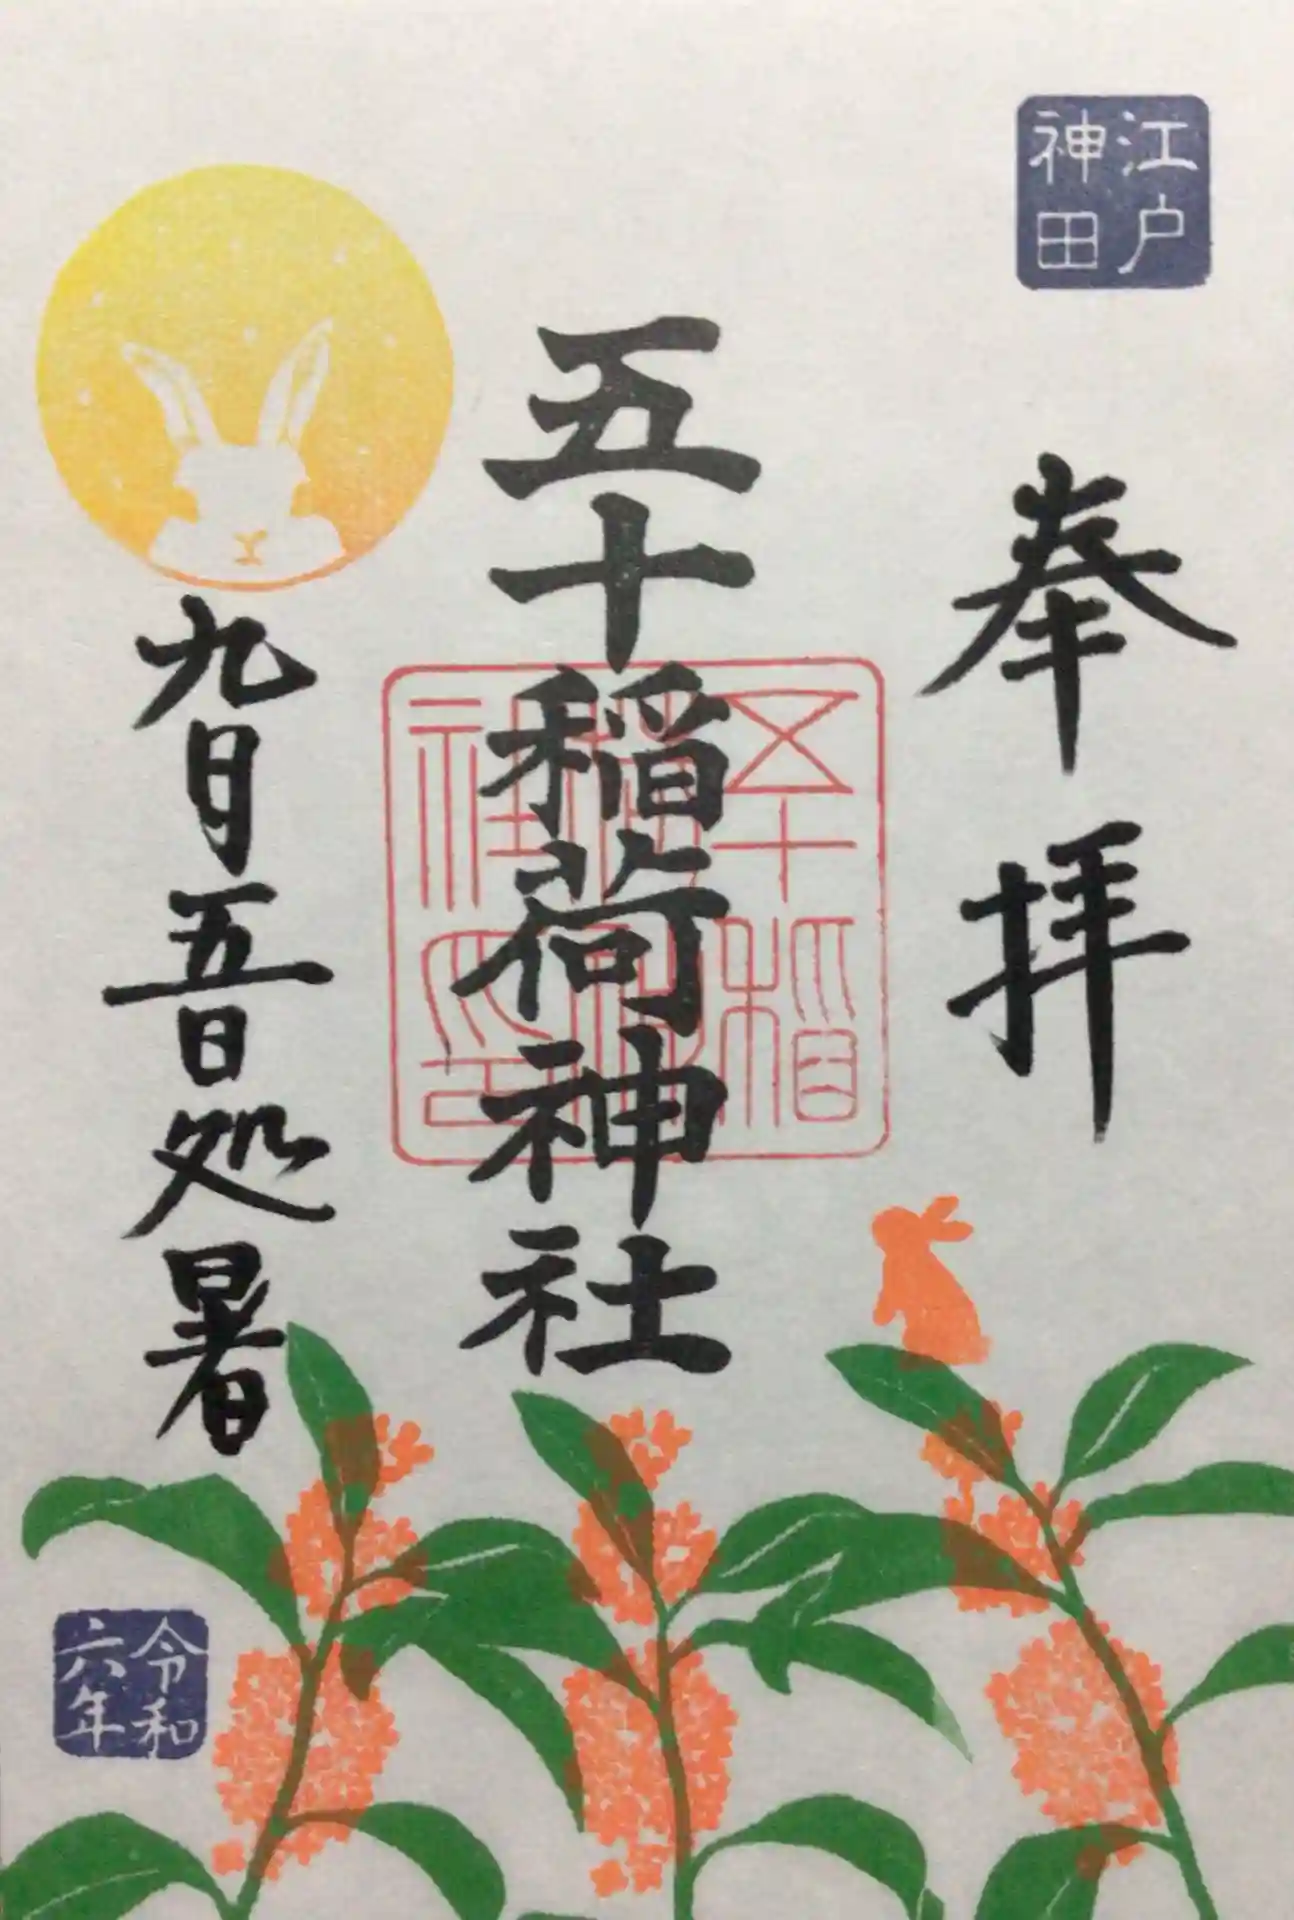 江戸
神田
奉拝
五十稲荷神社
五十稲
社印
九月五日処暑
令和
六年